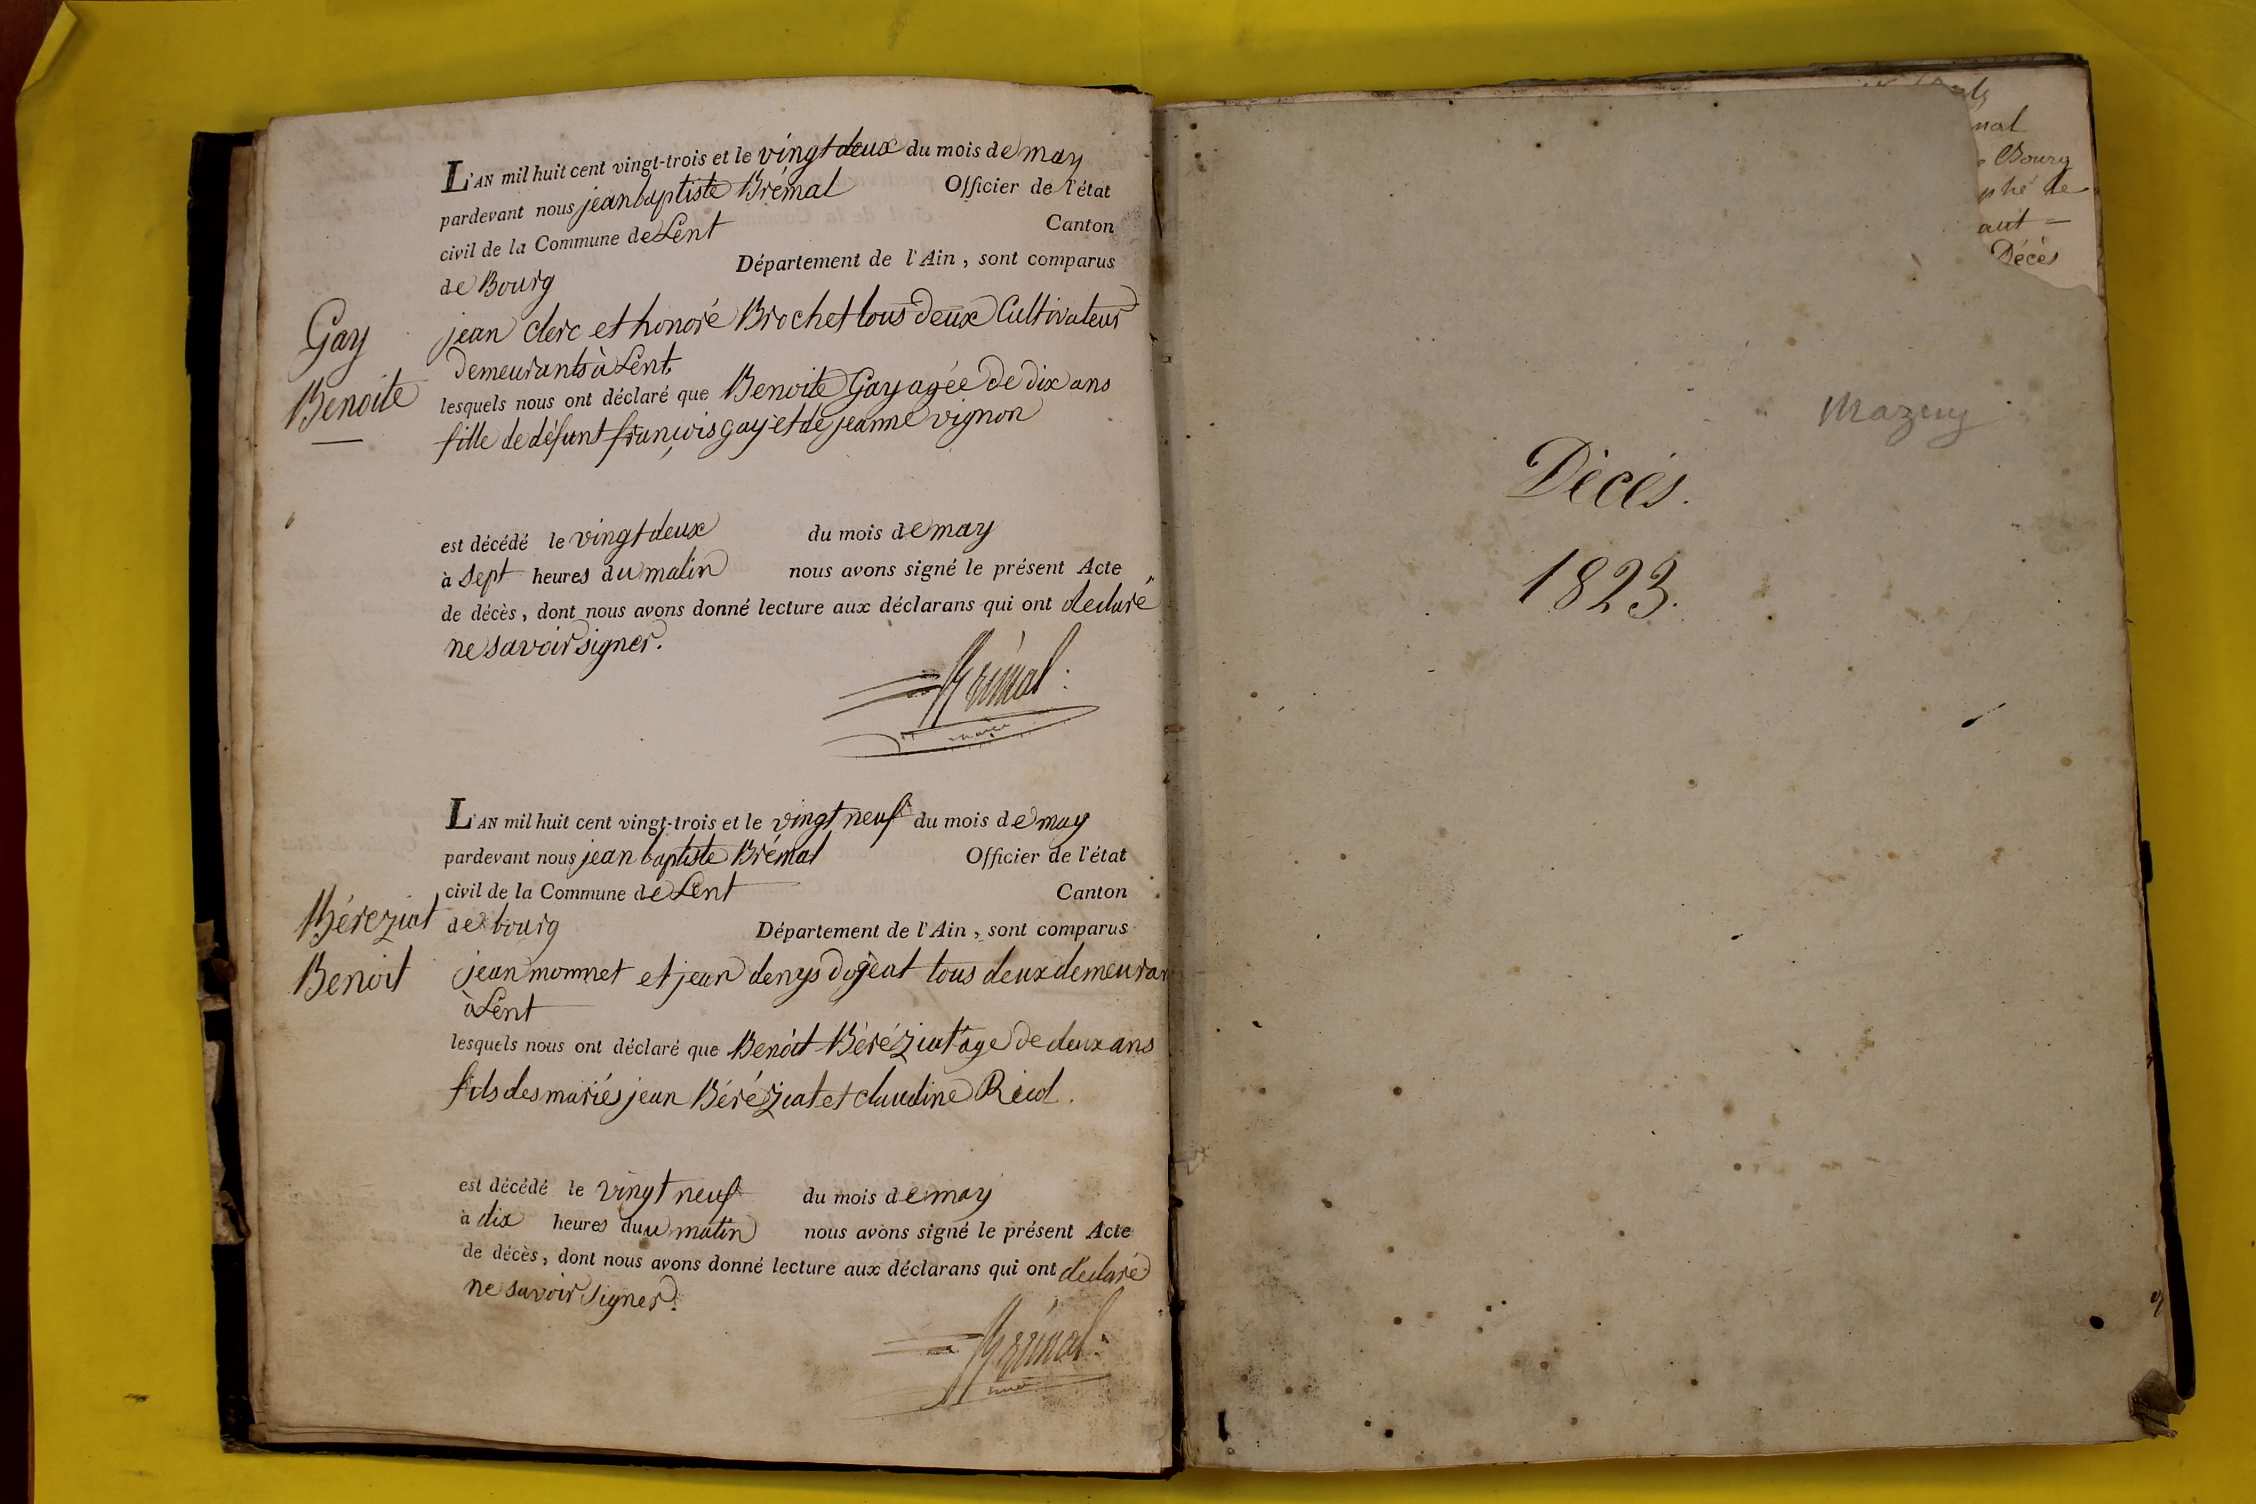 L'AN mil huit cent vingt-trois et le vingt deux du mois de may
pardevant nous jean baptiste Brémal Officier de l'état
civil de la Commune de Lent Canton
de Bourg Département de l'Ain, sont comparus
Gay
Benoite
jean clerc et honoré Brochet tous deux Cultivateurs
demeurants à Lent
lesquels nous ont déclaré que Benoite Gay agée de dix ans
fille de défunt françois gay et de jeanne vignon
est décédé le vingt deux du mois de may
à sept heures du matin nous avons signé le présent Acte
de décès, dont nous avons donné lecture aux déclarans qui ont declaré
ne savoir signer.
Brémal
maire
L'AN mil huit cent vingt-trois et le vingt neuf du mois de may
pardevant nous jean baptiste Brémal Officier de l'état
civil de la Commune de Lent Canton
de bourg Département de l'Ain, sont comparus
Béreziat
Benoit
jean monnet et jean denys dojeat tous deux demeuran
à Lent
lesquels nous ont déclaré que Benoit Béréziat age de deux ans
fils des mariés jean Béréziat et claudine
est décédé le vingt neuf du mois de may
à dix heures du matin nous avons signé le présent Acte
de décès, dont nous avons donné lecture aux déclarans qui ont déclaré
ne savoir signer.
Brémal
Mazuy
Décès.
1823.
mal
Bourg
phé de
aut =
Décès